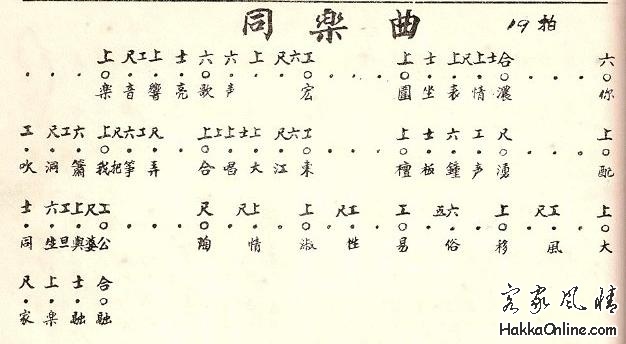 同樂曲 19拍
上 尺工上 士 六 六 上 尺 六工 上 士 上尺上士合 六
樂 音 響 亮 歌 声 宏 圍 坐 表 情 濃 你
工 尺工六 上尺六工尺 上上士上 尺六工 上 士 六 工 尺 上
吹 洞 簫 我把箏 弄 合 唱 大 江 東 檀 板 鍾 声 湧 配
士 六工上尺工 尺 尺上 上 工尺 工 五六 上 工尺 上
同 生旦與婆公 陶 情 淑 性 易 俗 移 風 大
尺 上 士 合
家 樂 融 融
客家風情
HakkaOnline.com